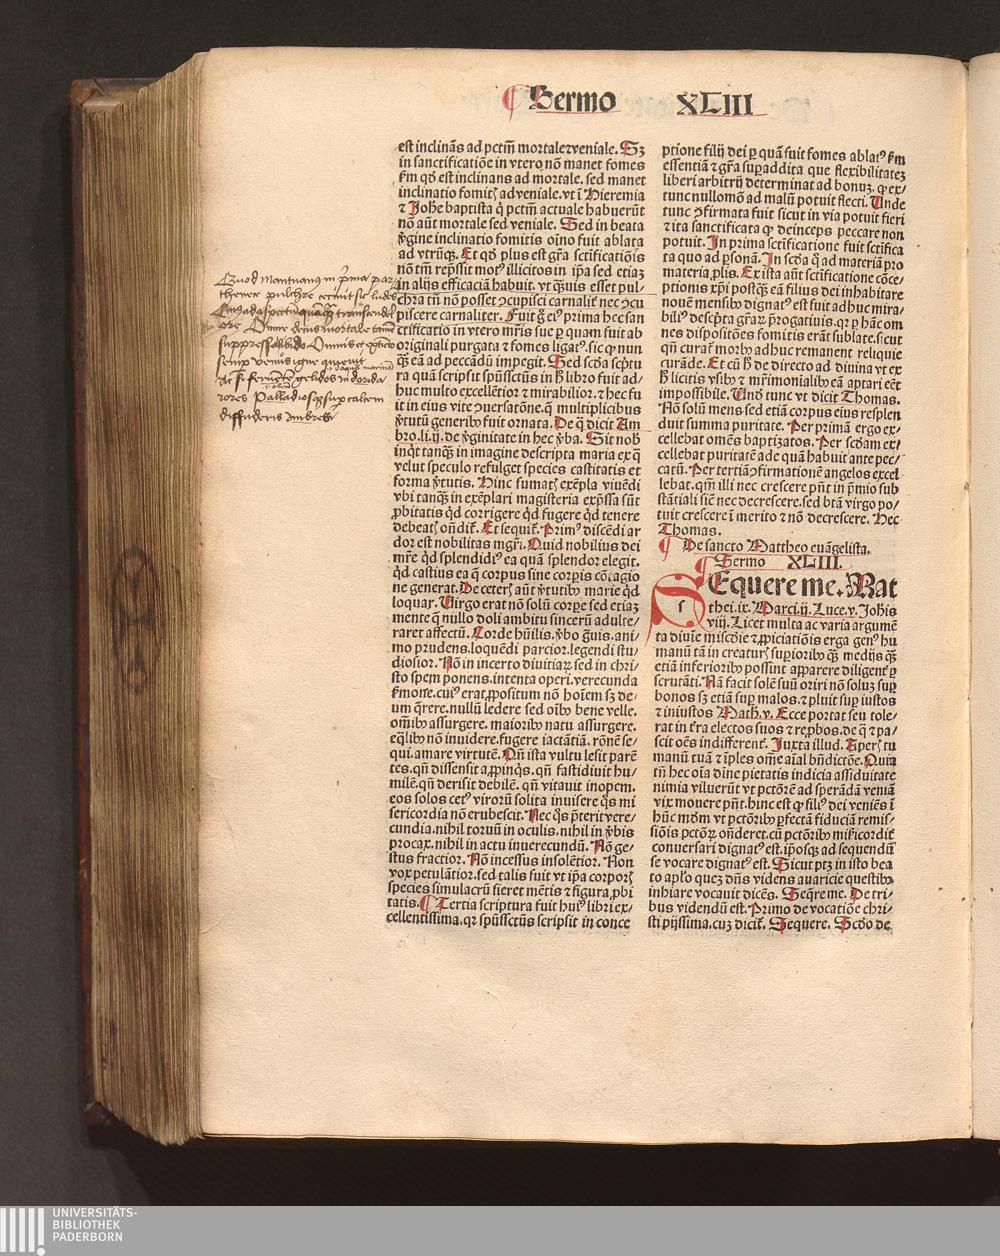 Sermo XLIII
est inclinãs ad pctm̃ mortale ⁊ veniale. Sꝫ
in sanctificatiõe in vtero nõ manet fomes
ẜm qd̃ est inclinans ad mortale. sed manet
inclinatio fomitꝭ ad veniale. vt ĩ Hieremia
⁊ Johẽ baptista q̃ pctm̃ actuale habuerũt
nõ aũt mortale sed veniale. Sed in beata
ṽgine inclinatio fomitis oĩno fuit ablata
ad vtrũqꝫ. Et qd̃ plus est gr̃a sctificatiõis
nõ tm̃ rep̃ssit motꝰ illicitos in ip̃a sed etiaꝫ
in alijs efficaciã habuit. vt q̃uis esset pul⸗
chra tñ nõ posset ꝯcupisci carnalit̃ nec ꝯcu
piscere carnaliter. Fuit g̃ eiꝰ prima hec san
ctificatio in vtero mr̃is sue ꝑ quam fuit ab
originali purgata ⁊ fomes ligatꝰ. sic ꝙ nun
qꝫ̃ eã ad peccãdũ impegit. Sed scd̃a scp̃tu
ra quã scripsit spũssctũs in h̃ libro fuit ad⸗
huc multo excellẽtior ⁊ mirabilior. ⁊ hec fu
it in eius vite ꝯuersatõne. q̃ multiplicibus
ṽtutũ generibꝰ fuit ornata. De q̃ dicit Am
bro. li. ij. de ṽginitate in hec ṽba. Sit nob̃
inq̃t tanqꝫ̃ in imagine descripta maria ex q̃
velut speculo refulget species castitatis et
forma ṽtutis. Hinc sumatꝭ exẽpla viuẽdi
vbi tanqꝫ̃ in exẽplari magisteria exp̃ssa sũt
ꝓbitatis qd̃ corrigere qd̃ fugere qd̃ tenere
debeatꝭ oñdit̃. Et sequit̃. Primꝰ discẽdi ar
dor est nobilitas mgr̃i. Quid nobilius dei
mr̃e qd̃ splendidiꝰ ea quã splendor elegit.
qd̃ castius ea q̃ corpus sine corpis cõtagio
ne generat. De ceterꝭ aũt ṽtutibꝰ marie qd̃
loquar. Uirgo erat nõ solũ corpe sed etiaꝫ
mente q̃ nullo doli ambitu sincerũ adulte⸗
raret affectũ. Corde hũilis. ṽbo g̃uis. ani⸗
mo prudens. loquẽdi parcior. legendi stu⸗
diosior. Nõ in incerto diuitiaꝝ sed in chri⸗
sto spem ponens. intenta operi. verecunda
ẜmone. cuiꝰ erat ꝓpositum nõ hoĩem sꝫ de⸗
um q̃rere. nullũ ledere sed oĩbꝰ bene velle.
om̃ibꝰ assurgere. maioribꝰ natu assurgere.
eq̃libꝰ nõ inuidere. fugere iactãtiã. rõnẽ se⸗
qui. amare virtutẽ. Qñ ista vultu lesit parẽ
tes. qñ dissensit a ꝓpinq̃s. qñ fastidiuit hu⸗
milẽ. qñ derisit debilẽ. qñ vitauit inopem.
eos solos cetꝰ virorũ solita inuisere q̃s mi
sericordia nõ erubescit. Nec q̃s p̃terit vere⸗
cundia. nihil toruũ in oculis. nihil in ṽbis
procax. nihil in actu inuerecundũ. Nõ ge⸗
stus fractior. Nõ incessus insolẽtior. Non
vox petulãtior. sed talis fuit vt ip̃a corporꝭ
species simulacrũ fieret mẽtis ⁊ figura ꝓbi
tatis. Tertia scriptura fuit huiꝰ libri ex⸗
cellentissima. qꝛ spũssctũs scripsit in conce
ptione filij dei ꝑ quã fuit fomes ablatꝰ ẜm
essentiã ⁊ gr̃a supaddita que flexibilitateꝫ
liberi arbitrij determinat ad bonuꝫ. ꝙ ex⸗
tunc nullomõ ad malũ potuit flecti. Unde
tunc ꝯfirmata fuit sicut in via potuit fieri
⁊ ita sanctificata ꝙ deinceps peccare non
potuit. In prima sctificatione fuit sctifica
ta quo ad ꝑsonã. In scd̃a q̃ ad materiã pro
materia. ꝓlis. Ex ista aũt sctificatione cõce⸗
ptionis xp̃i postqꝫ̃ eã filius dei inhabitare
nouẽ mensibꝰ dignatꝰ est fuit adhuc mira⸗
bili⁹ descp̃ta gr̃aꝝ p̃rogatiuis. qꝛ ꝑ hãc om
nes dispositões fomitis erãt sublate. sicut
qñ curat̃ morbꝰ adhuc remanent reliquie
curãde. Et cũ h̃ de directo ad diuina vt ex
h̃ licitis vsibꝰ ⁊ mr̃imonialibꝰ eã aptari eẽt
impossibile. Uñd̃ tunc vt dicit Thomas.
Nõ solũ mens sed etiã corpus eius resplen
duit summa puritate. Per primã ergo ex⸗
cellebat om̃es baptizatos. Per scd̃am ex⸗
cellebat puritatẽ ade quã habuit ante pec⸗
catũ. Per tertiã ꝯfirmationẽ angelos excel
lebat. qm̃ illi nec crescere pñt in p̃mio sub
stãtiali siẽ nec decrescere. sed btã virgo po⸗
tuit crescere ĩ merito ⁊ nõ decrescere. Hec
Thomas.
De sancto Mattheo euãgelista.
Sermo XLIII.
SEquere me. Mat
thei. ix. Marci. ij. Luce. v. Joh̃is
viij. Licet multa ac varia argumẽ
ta diuie miscd̃ie ⁊ ꝓpiciatiõis erga genꝰ hu
manũ tã in creaturꝭ supioribꝰ qꝫ̃ medijs qꝫ̃
etiã inferioribꝰ possint apparere diligent̃ ꝑ
scrutãti. Nã facit solẽ suũ oriri nõ soluꝫ sup̃
bonos sꝫ etiã sup̃ malos. ⁊ pluit sup̃ iustos
⁊ iniustos Math̃. v. Ecce portat seu tole⸗
rat in t̃ra electos suos ⁊ rep̃bos. de q̃ ⁊ pa⸗
scit oẽs indifferent̃. Juxta illud. Aperꝭ tu
manũ tuã ⁊ ĩples om̃e aĩal bñdictõe. Quia
tñ hec oĩa diũe pietatis indicia assiduitate
nimia viluerũt vt pctõrẽ ad sperãdã veniã
vix mouere pñt. hinc est ꝙ filiꝰ dei veniẽs ĩ
hũc mũdm̃ vt pctõribꝰ ꝑfectã fiduciã remis⸗
siõis pctõꝝ oñderet. cũ pctõribꝰ mi̇ẜicordit̃
conuersari dignatꝰ est. ip̃osqꝫ ad sequendũ
se vocare dignatꝰ est. Sicut ptꝫ in isto bea
to apl̃o queꝫ dñs videns auaricie questibꝰ
inhiare vocauit dicẽs. Seq̃re me. De tri⸗
bus videndũ est. Primo de vocatiõe chri⸗
sti pijssima. cuꝫ dicit̃. Sequere. Scd̃o de
Quod Mantuanus in p̃ma par
thenice pulchre
Omne
suppressa libido
Palladios
diffuderis imbres
UNIVERSITÄTS-
BIBLIOTHEK
PADERBORN